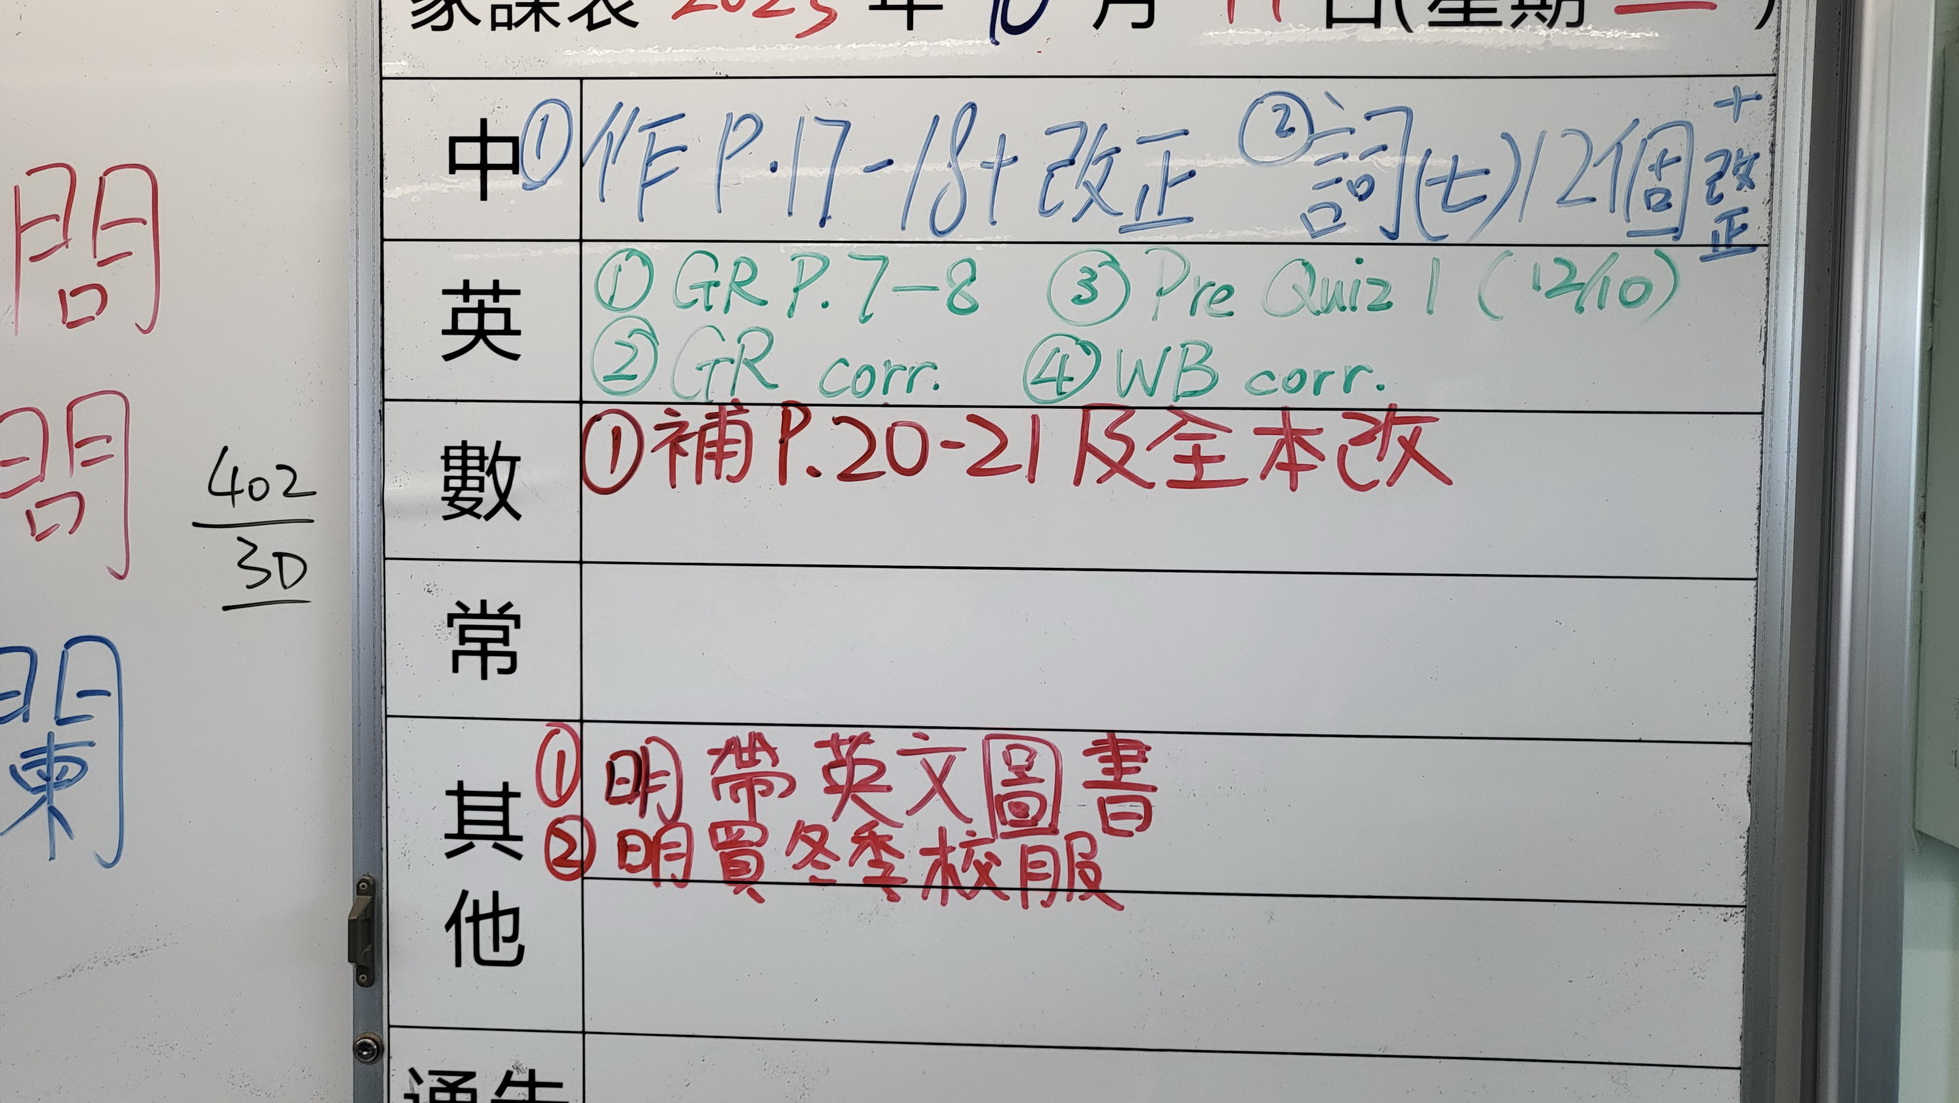 家課表 2023 年 10 月 11 日(星期 三 )
中 ①作 P.17-18+改正 ②詞(七)12個+改正
英 ①GR P.7-8 ③Pre Quiz 1 (12/10)
②GR corr. ④WB corr.
數 ①補 P.20-21及全本改
常
其他 ①明帶英文圖書
②明買冬季校服
通告
問
問
闌
402
30